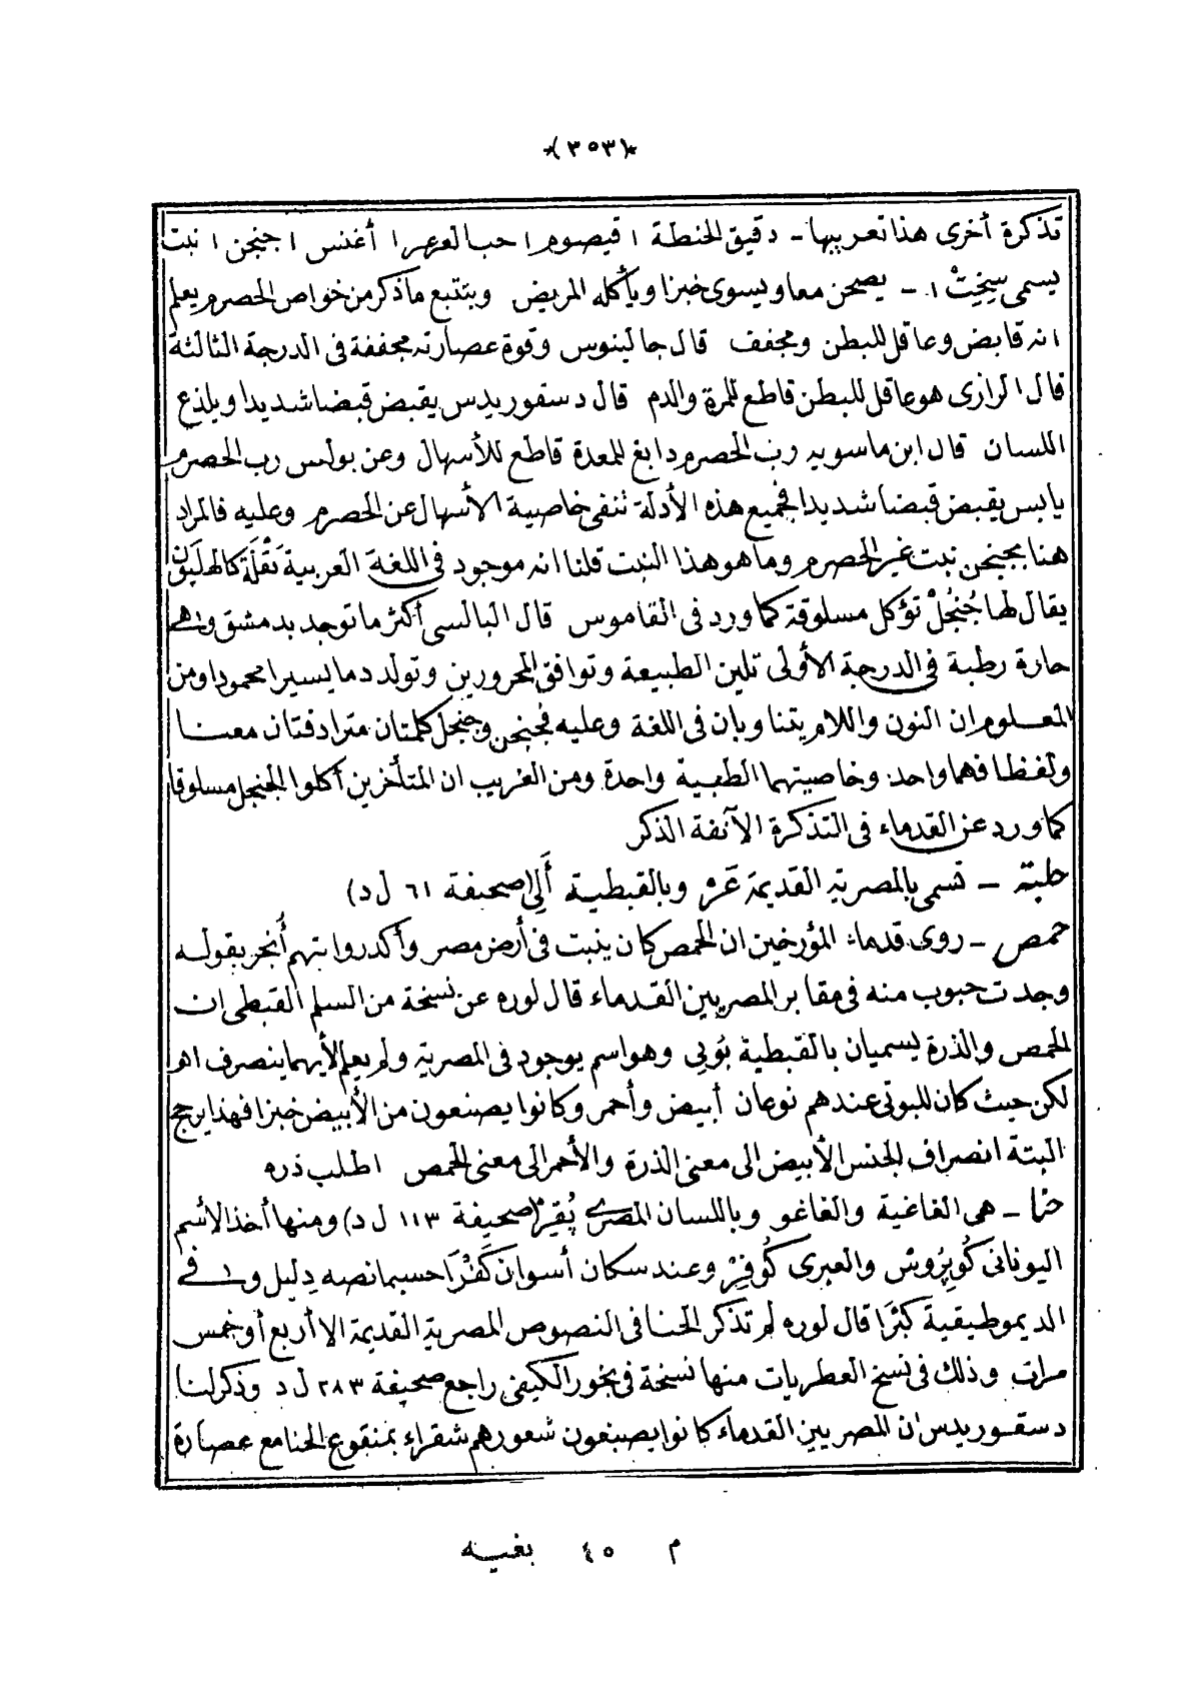 *(٣٥٣)*
تذكرة أخرى هذا تعريبها - دقيق الحنطة ١ قيصوم ١ حب العرعر ١ أغنس ١ جنجن ١ نبت
يسمى سِيخِتْ ١ - يصحن معا ويسوى خبزا ويأكله المريض وبتتبع ما ذكر من خواص الحصرم يعلم
انه قابض وعاقل للبطن ومجفف قال جالينوس وقوة عصارته مجففة فى الدرجة الثالثة
قال الرازى هو عاقل للبطن قاطع للمرة والدم قال دسقوريدس يقبض قبضا شديدا ويلذع
اللسان قال ابن ماسويه رب الحصرم دابغ للمعدة قاطع للأسهال وعن بولس رب الحصرم
يابس يقبض قبضا شديدا فجميع هذه الأدلة تنفى خاصية الأسهال عن الحصرم وعليه فالمراد
هنا بجنجن نبت غير الحصرم وما هو هذا النبت قلنا انه موجود فى اللغة العربية بَقْلَة كالهليَون
يقال لها جُنْجُلْ تؤكل مسلوقة كما ورد فى القاموس قال البالسى أكثر ما توجد بدمشق وهى
حارة رطبة فى الدرجة الأولى تلين الطبيعة وتوافق المحرورين وتولد دما يسيرا محمودا ومن
المعلوم ان النون واللام يتناوبان فى اللغة وعليه فجنجن وجنجل كلمتان مترادفتان معنا
ولفظا فهما واحد وخاصيتهما الطبية واحدة ومن الغريب ان المتأخرين أكلوا الجنجل مسلوقا
كما ورد عن القدماء فى التذكرة الآنفة الذكر
حلبة - تسمى بالمصرية القديمة عَرْ وبالقبطية أَلِى (صحيفة ٦١ ل د)
حمص - روى قدماء المؤرخين ان الحمص كان ينبت فى أرض مصر وأكد روايتهم أُنجر بقوله
وجدت حبوب منه فى مقابر المصريين القدماء قال لوره عن نسخة من السلم القبطى ان
الحمص والذرة يسميان بالقبطية بُوبى وهو اسم يوجود فى المصرية ولم يعلم لأيهما ينصرف اهـ
لكن حيث كان للبوتى عندهم نوعان أبيض وأحمر وكانوا يصنعون من الأبيض خبزا فهذا يرجح
البتة انصراف الجنس الأبيض الى معنى الذرة والأحمر الى معنى الحمص اطلب ذره
حنا - هى الفاغية والفاغو وباللسان المصرى پُقِيرْ (صحيفة ١١٣ ل د) ومنها أخذ الأسم
اليونانى كُوپرُوسْ والعبرى كُوفِرْ وعند سكان أسوان كَفْرَا حسبما نصه دِليل وفى
الديموطيقية كَبْرَا قال لوره لم تذكر الحنا فى النصوص المصرية القديمة الا أربع أو خمس
مرات وذلك فى نسخ العطريات منها نسخة فى بخور الكيفى راجع صحيفة ٢٨٣ ل د وذكر لنا
دسقوريدس ان المصريين القدماء كانوا يصبغون شعورهم شقراء بمنقوع الحنا مع عصارة
م ٤٥ بغيه